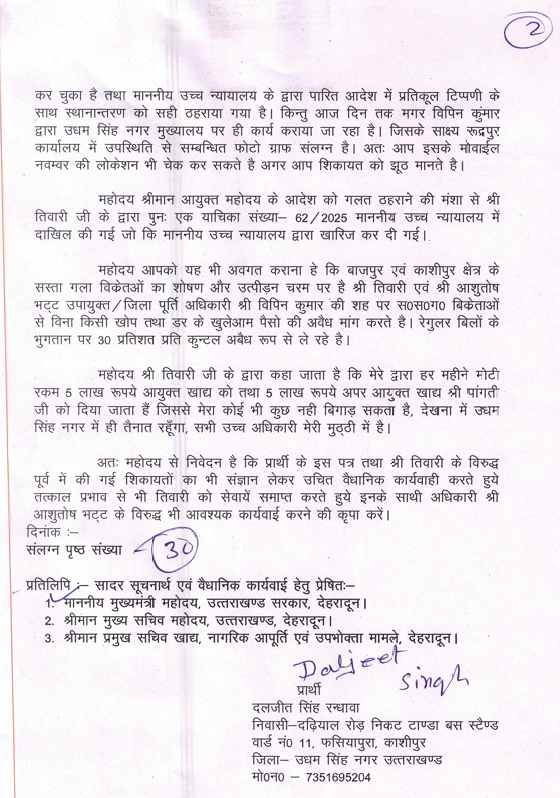 2
कर चुका है तथा माननीय उच्च न्यायालय के द्वारा पारित आदेश में प्रतिकूल टिप्पणी के
साथ स्थानान्तरण को सही ठहराया गया है। किन्तु आज दिन तक मगर विपिन कुंमार
द्वारा उधम सिंह नगर मुख्यालय पर ही कार्य कराया जा रहा है। जिसके साक्ष्य रूद्रपुर
कार्यालय में उपस्थिति से सम्बन्धित फोटो ग्राफ संलग्न है। अतः आप इसके मोवाईल
नवम्वर की लोकेशन भी चेक कर सकते है अगर आप शिकायत को झूठ मानते है।
महोदय श्रीमान आयुक्त महोदय के आदेश को गलत ठहराने की मंशा से श्री
तिवारी जी के द्वारा पुनः एक याचिका संख्या– 62/2025 माननीय उच्च न्यायालय में
दाखिल की गई जो कि माननीय उच्च न्यायालय द्वारा खारिज कर दी गई।
महोदय आपको यह भी अवगत कराना हे कि बाजपुर एवं काशीपुर क्षेत्र के
सस्ता गला विकेताओं का शोषण और उत्पीड़न चरम पर है श्री तिवारी एवं श्री आशुतोष
भट्ट उपायुक्त/जिला पूर्ति अधिकारी श्री विपिन कुमार की शह पर स0स0ग0 बिकेताओं
से विना किसी खोप तथा डर के खुलेआम पैसो की अवैध मांग करते है। रेगुलर बिलों के
भुगतान पर 30 प्रतिशत प्रति कुन्टल अबैध रूप से ले रहे है।
महोदय श्री तिवारी जी के द्वारा कहा जाता है कि मेरे द्वारा हर महीने मोटी
रकम 5 लाख रूपये आयुक्त खाद्य को तथा 5 लाख रूपये अपर आयुक्त खाद्य श्री पांगती
जी को दिया जाता हैं जिससे मेरा कोई भी कुछ नही बिगाड़ सकता है, देखना में उधम
सिंह नगर में ही तैनात रहूँगा, सभी उच्च अधिकारी मेरी मुठ्ठी में है।
अतः महोदय से निवेदन है कि प्रार्थी के इस पत्र तथा श्री तिवारी के विरुद्व
पूर्व में की गई शिकायतों का भी संज्ञान लेकर उचित वैधानिक कार्यवाही करते हुये
तत्काल प्रभाव से भी तिवारी को सेवायें समाप्त करते हुये इनके साथी अधिकारी श्री
आशुतोष भट्ट के विरुद्ध भी आवश्यक कार्यवाई करने की कृपा करें।
दिनांक :–
संलग्न पृष्ठ संख्या – 30
प्रतिलिपि :– सादर सूचनार्थ एवं वैधानिक कार्यवाई हेतु प्रेषितः–
1. माननीय मुख्यमंत्री महोदय, उत्तराखण्ड सरकार, देहरादून।
2. श्रीमान मुख्य सचिव महोदय, उत्तराखण्ड, देहरादून।
3. श्रीमान प्रमुख सचिव खाद्य, नागरिक आपूर्ति एवं उपभोक्ता मामले, देहरादून।
Daljeet Singh
प्रार्थी
दलजीत सिंह रन्धावा
निवासी–दढ़ियाल रोड़ निकट टाण्डा बस स्टैण्ड
वार्ड नं0 11, फसियापुरा, काशीपुर
जिला– उधम सिंह नगर उत्तराखण्ड
मो0न0 – 7351695204